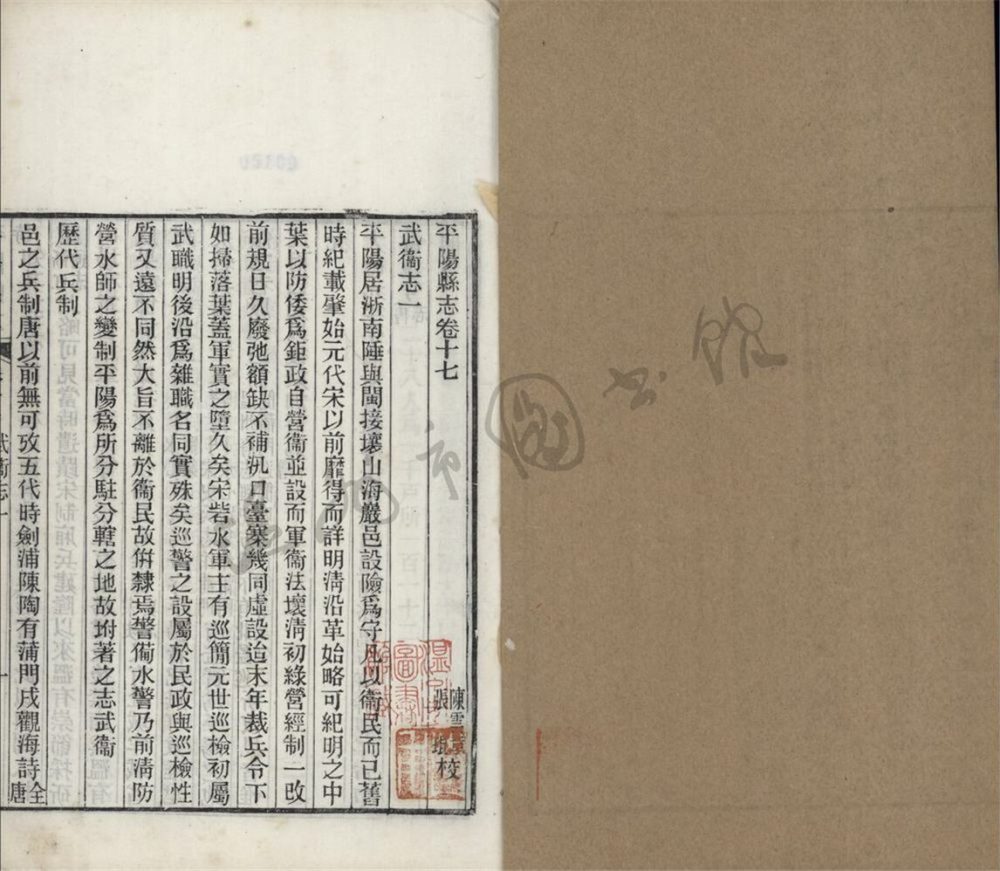 平陽縣志卷十七
陳
張 校
武衞志一
平陽居浙南陲與閩接壤山海嚴邑設險爲守凡以衞民而已舊
時紀載肇始元代宋以前靡得而詳明淸沿革始略可紀明之中
葉以防倭爲鉅政自營衞並設而軍衞法壞淸初綠營經制一改
前規日久廢弛額缺不補汛口臺寨幾同虛設迨末年裁兵令下
如掃落葉蓋軍實之墮久矣宋砦水軍主有巡簡元世巡檢初屬
武職明後沿爲雜職名同實殊矣巡警之設屬於民政與巡檢性
質又遠不同然大旨不離於衞民故倂隸焉警備水警乃前淸防
營水師之變制平陽爲所分駐分轄之地故坿著之志武衞
歷代兵制
邑之兵制唐以前無可攷五代時劍浦陳陶有蒲門戍觀海詩全
唐
武衞志一
一